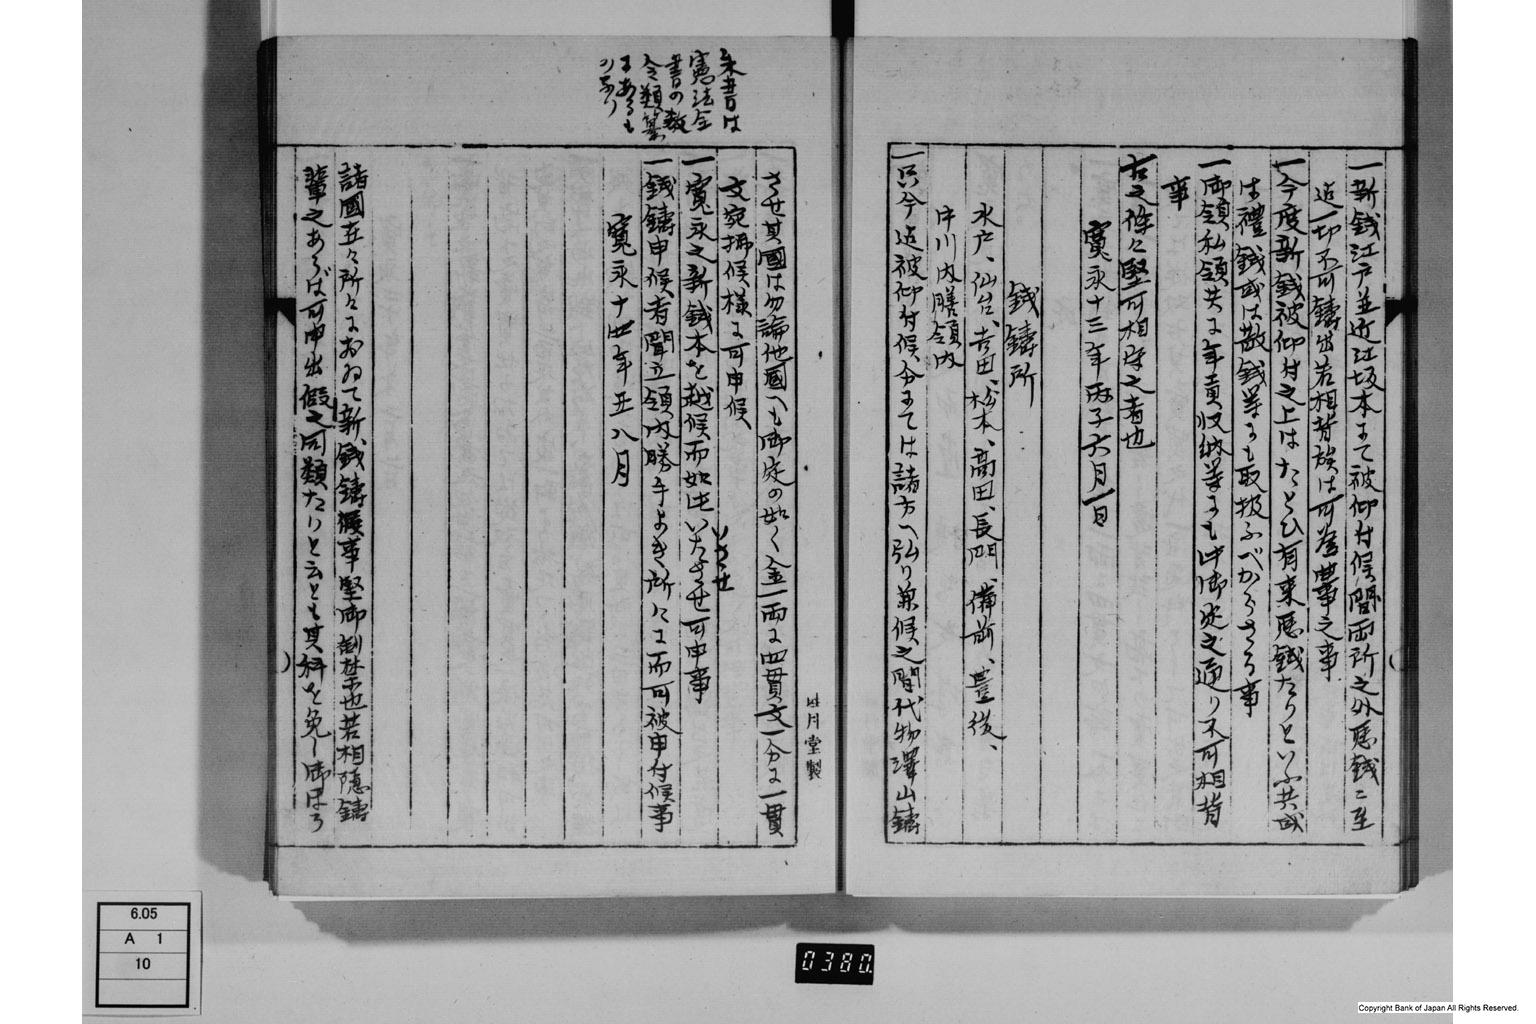 一新銭江戸並近江坂本にて被仰付候間両所之外悪銭ニ至
迄一切不可鋳出若相背族は可為曲事之事
一今度新銭被仰付之上はたとひ有来悪銭たりといふ共或
は礼銭或は散銭等にも取扱ふべからさる事
一御領私領共に年貢収納等にも此御定之通り不可相背
事
右之条々堅可相守之者也
寛永十三年丙子六月一日
銭鋳所
水戸、仙台、吉田、松本、高田、長門、備前、豊後、
中川内膳領内
一只今迄被仰付候分にては諸方へ弘り兼候之間代物沢山鋳
させ其国は勿論他国へも御定の如く金一両に四貫文一分に一貫
文宛払候様に可申候
一寛永之新銭本を越候而如此いたさせ可申事
いさせ
一銭鋳申候者聞立領内勝手よき所々に而可被申付候事
寛永十四年丑八月
諸国在々所々におゐて新銭鋳候事堅御制禁也若相隠鋳
輩之あらば可申出仮之同類たりと云とも其科を免し御ほう
朱書は
憲法全
書の教
令類纂
にあるも
のなり
6.05
A 1
10
0380.
Copyright Bank of Japan All Rights Reserved.